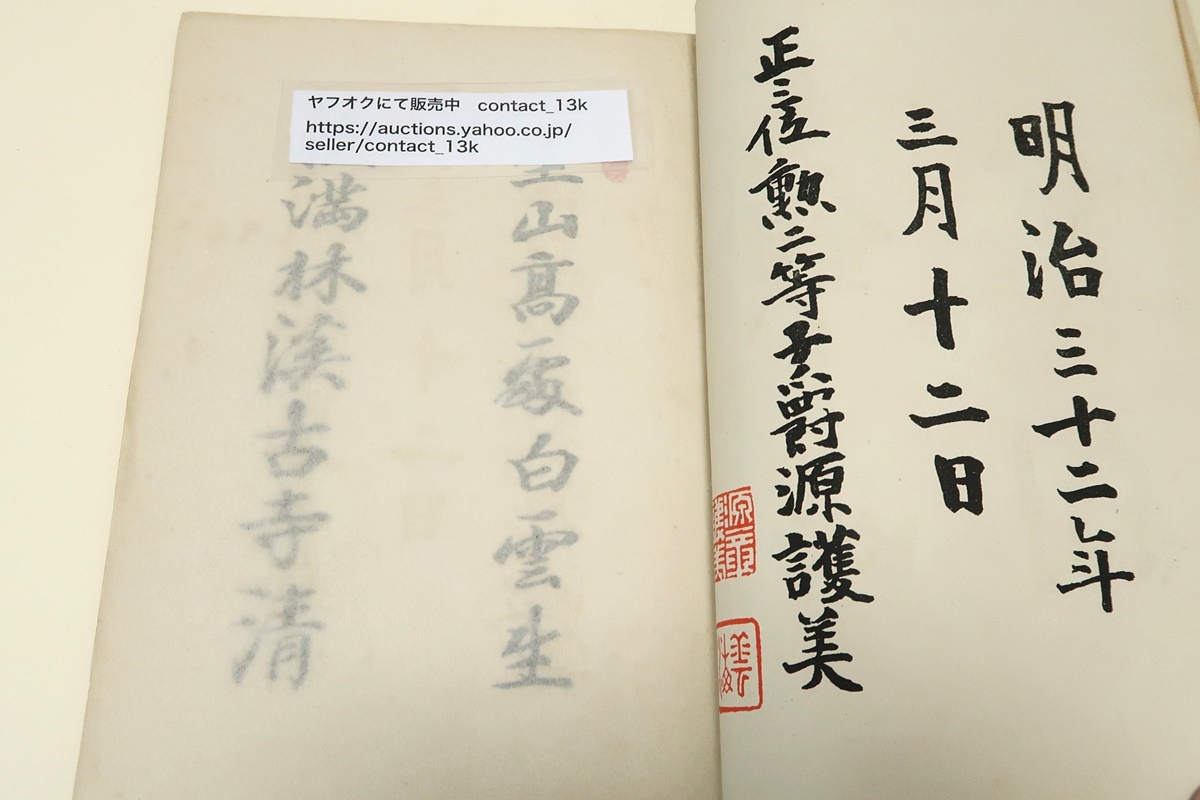 明治三十二年
三月十二日
正三位勲二等子爵源護美
山高處白雲生
滿林溪古寺清
ヤフオクにて販売中 contact_13k
https://auctions.yahoo.co.jp/
seller/contact_13k